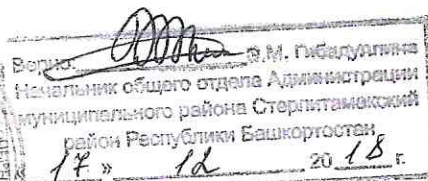 Верно: Э.М. Гибадуллина
Начальник общего отдела Администрации
муниципального района Стерлитамакский
район Республики Башкортостан
17 » 12 20 18 г.